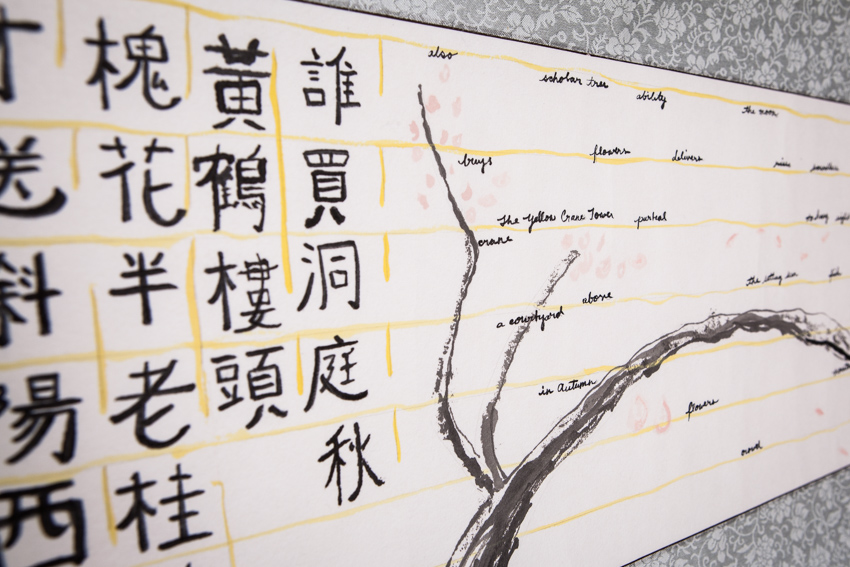 誰買洞庭秋
黃鶴樓頭
槐花半老桂
送斜陽西
also scholar tree ability the moon
buys flowers delivers
The Yellow Crane Tower partial
crane
a courtyard above the setting sun
in Autumn flowers